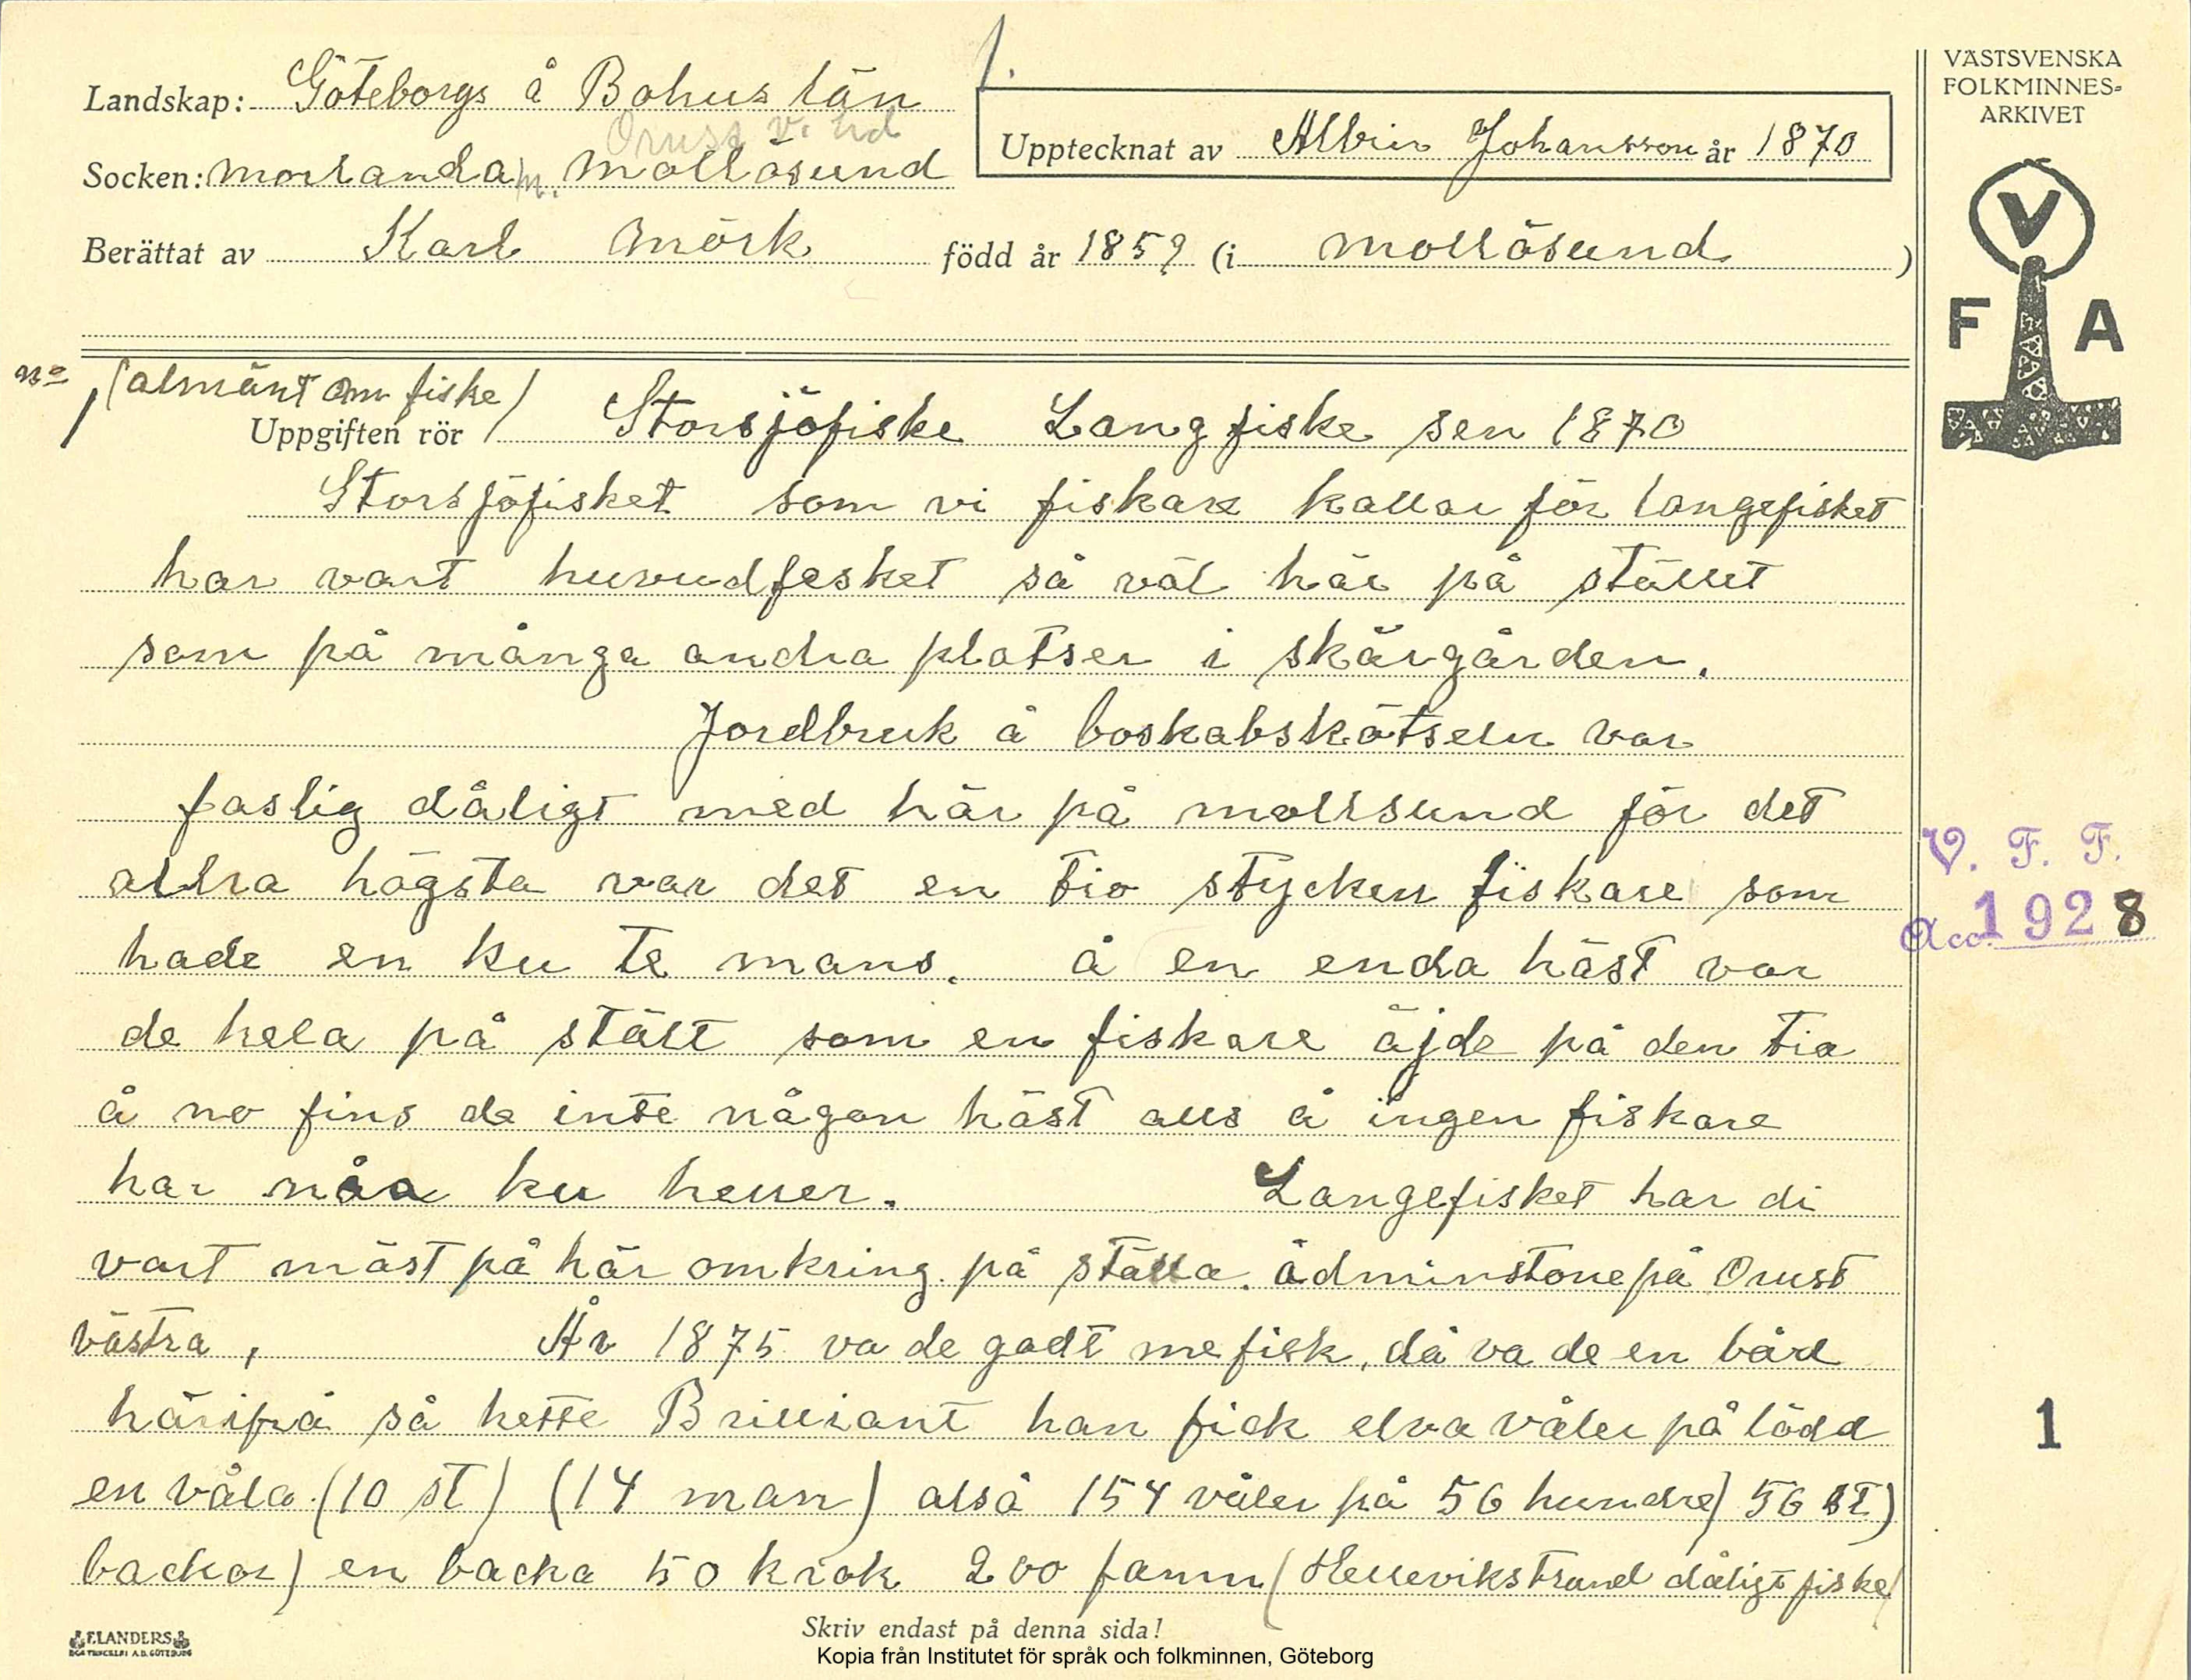 1.
VÄSTSVENSKA
FOLKMINNES-
ARKIVET
Landskap: Göteborgs å Bohus län
Orust V. hd
Upptecknat av Albin Johansson år 1870
Socken: morlanda m. mollösund
Berättat av Karl mörk född år 1859 (i mollösund)
V
F A
no 1 (almänt om fiske)
Uppgiften rör Storsjöfiske Langfiske sen 1870
Storsjöfisket som vi fiskare kallar för langefisket
har vart huvudfesket så väl här på stället
som på många andra platser i skärgården.
Jordbruk å boskabskötseln var
faslig dåligt med här på mollsund för det
allra högsta var det en tio stycken fiskare som
hade en ku te mans. å en enda häst var
de hela på stält som en fiskare äjde på den tia
å no fins de inte någon häst alls å ingen fiskare
har nåa ku heller. Langefisket har di
vart mäst på här omkring på ställa. ådminstone på Orust
västra, År 1875 va de godt me fisk, då va de en båd
härifrå så hette Brilliant han fick elva våler på lödd
en våla (10 st) (14 man) alså 154 våler på 56 hundre) 56 st)
backor) en backa 50 krok 200 famn (Hellevikstrand dåligt fiske)
V. F. F.
Acc. 1928
1
Skriv endast på denna sida!
ELANDERS
BOKTRYCKERI A.B. GÖTEBORG
Kopia från Institutet för språk och folkminnen, Göteborg